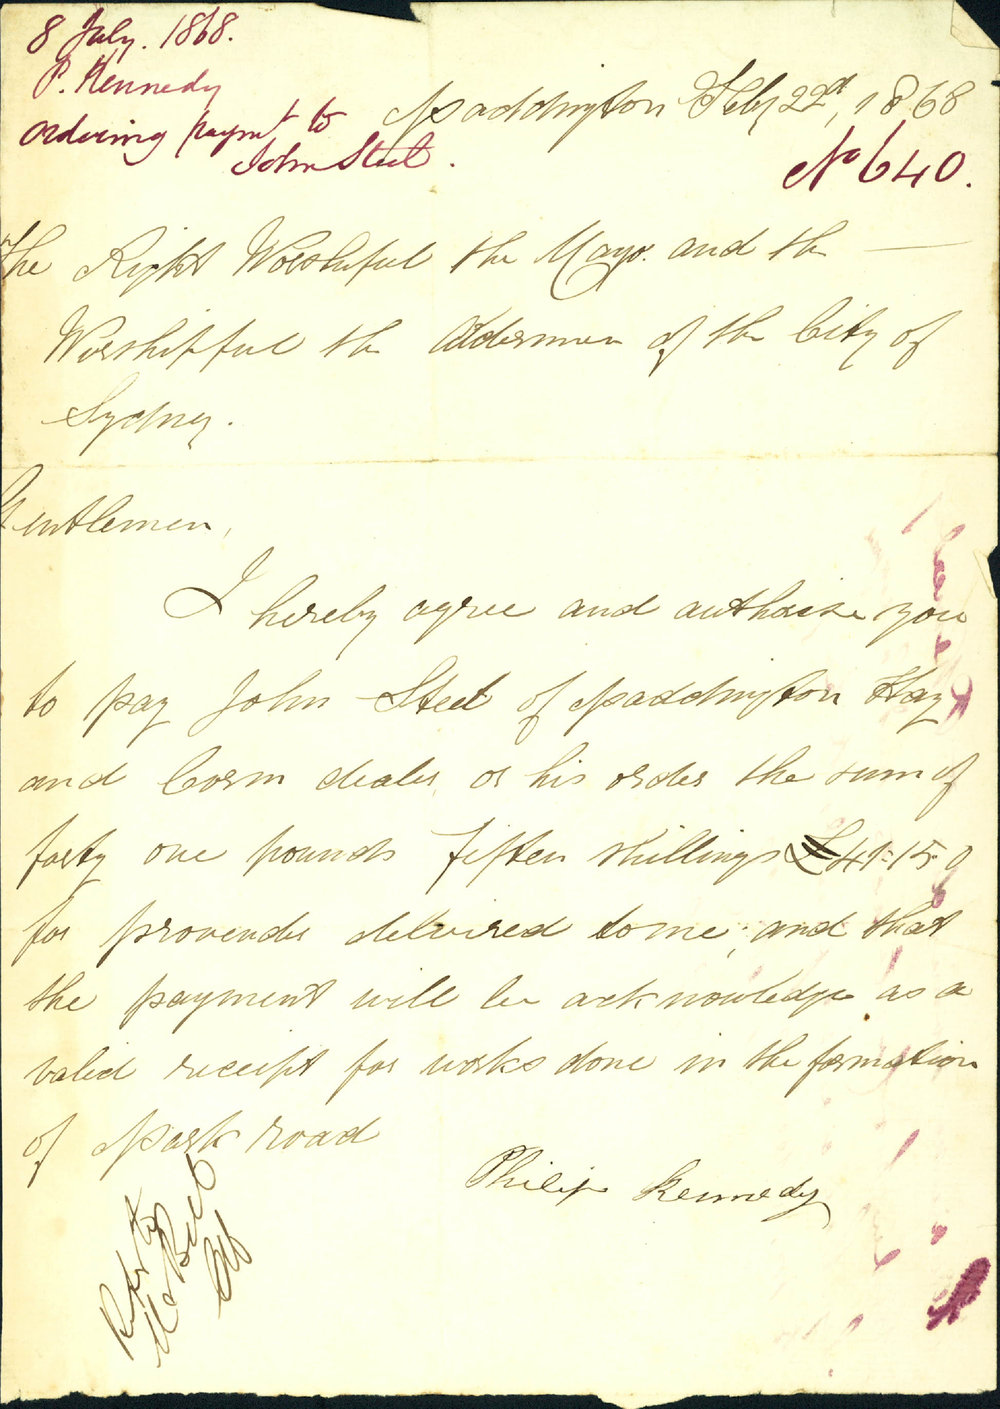 8 July. 1868.
P. Kennedy
Ordering paymt to
John Steel.
Paddington Feby 22d, 1868
No 640.
The Right Worshipful the Mayor and the
Worshipful the Aldermen of the City of
Sydney.
Gentlemen,
I hereby agree and authorise you
to pay John Steel of Paddington Hay
and Corn dealer or his order the sum of
forty one pounds fifteen shillings £41:15:0
for provender delivered to me; and that
the payment will be acknowledge as a
valid receipt for works done in the formation
of Park road
Philip Kennedy
Refer to
Mr Bell